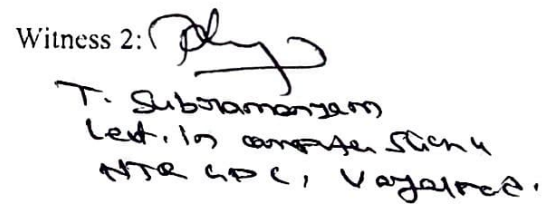 Witness 2:
T. Subramanyam
Lect. In computer Science
NTR GDC, Vayalpad.